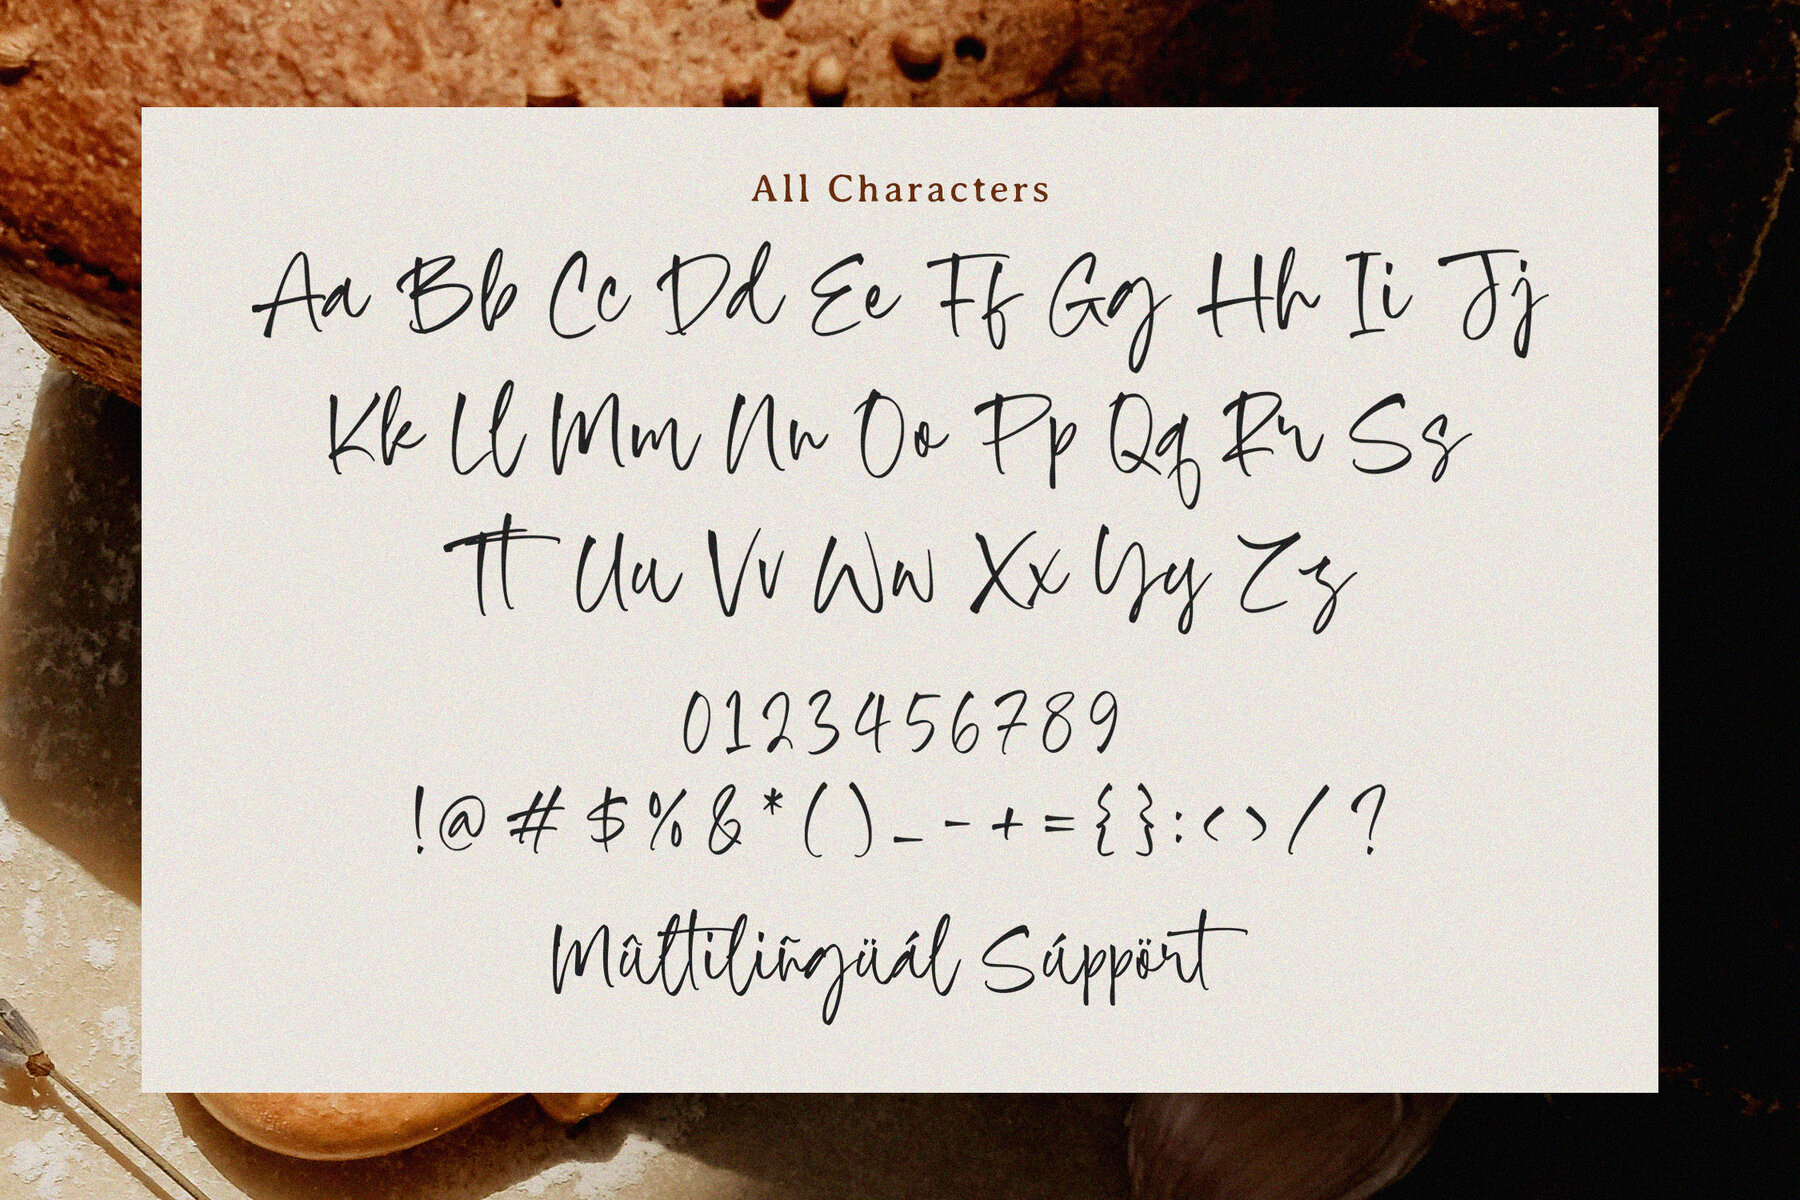 All Characters
Aa Bb Cc Dd Ee Ff Gg Hh Ii Jj
Kk Ll Mm Nn Oo Pp Qq Rr Ss
Tt Uu Vv Ww Xx Yy Zz
0123456789
!@#$%&*()_-+={}:<>/?
Mûltiliñgüál Súppört